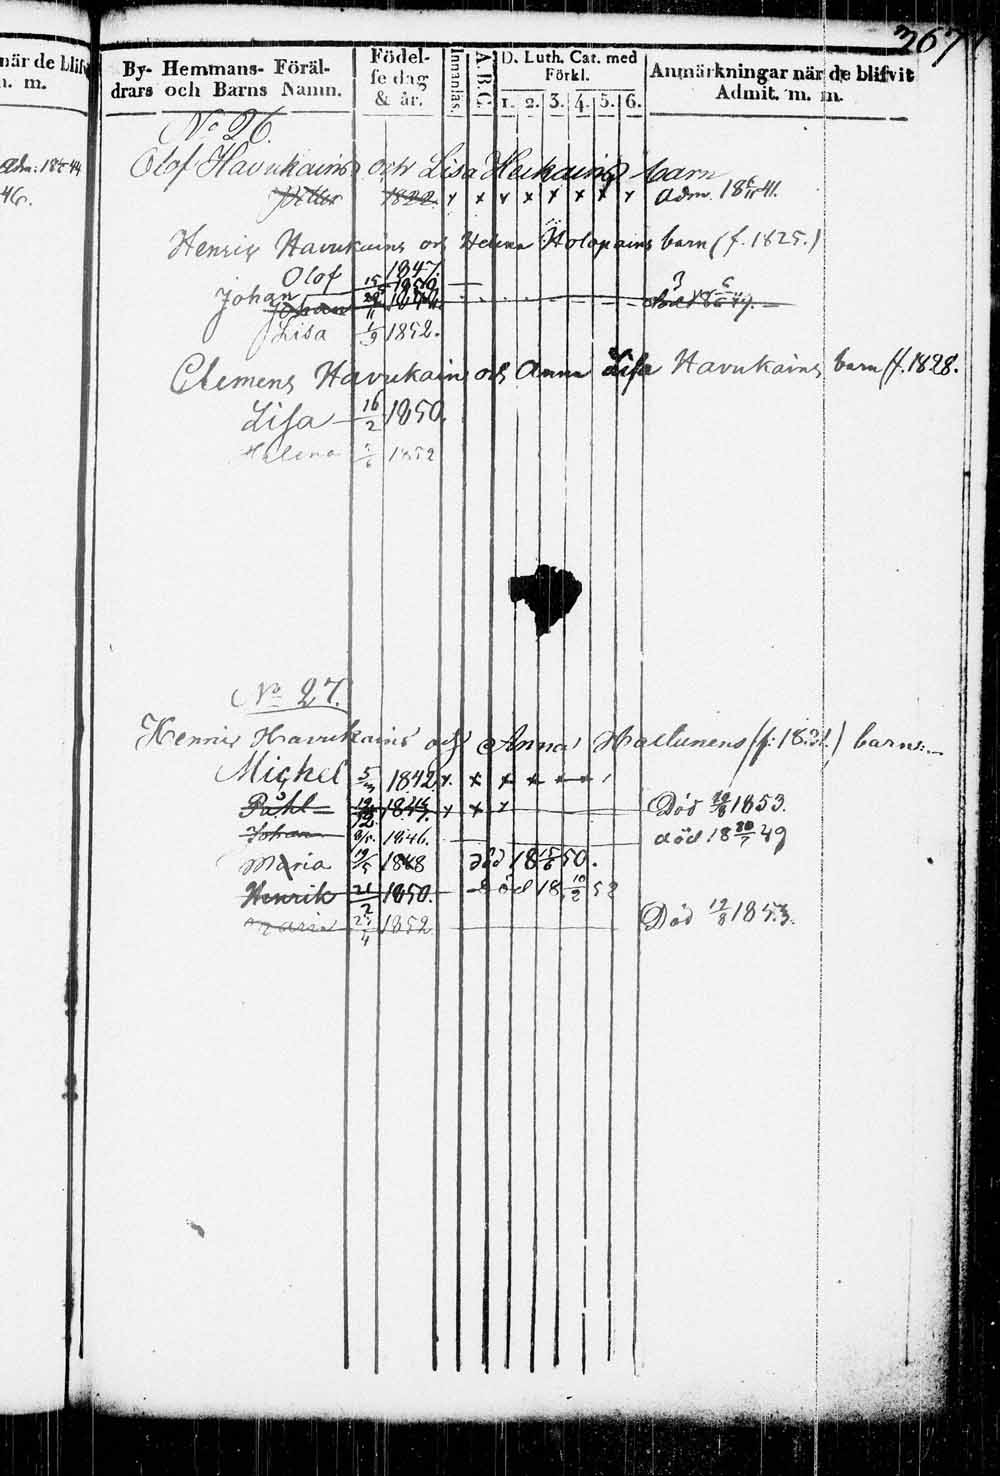 367
när de blifv
n. m.
adm: 18 44
46.
By- Hemmans- Föräl-
drars och Barns Namn.
Födel-
se dag
& år.
Innanläs.
A.B.C.
D. Luth. Cat. med
Förkl.
1. 2. 3. 4. 5. 6.
Anmärkningar när de blifvit
Admit. m. m.
No 26.
Olof Havukains och Lisa Heikains barn
Petter 1822. x x x x x x x x adm. 18 41.
Henric Havukains och Helena Holopains barn (f. 1825.)
Olof 1847.
Johan 15 1850.
Johan 11 död 18 49.
Lisa 1/9 1852.
Clemens Havukains och Anna Lisa Havukains barn (f. 1828.
Lisa 16/2 1850.
Helena /6 1852
No 27.
Henric Havukains och Anna Hallunens (f: 18 .) barn:
Michel 5/ 1842 x. x x x x x
Påhl 19/12 18 x x x Död 18/8 1853.
Johan 1846. död 18 20/7 49
Maria 19/5 1848 död 18 15/6 50.
Henrik 21/2 1850. död 18 10/2 52
Maria 25/4 1852 Död 12/8 1853.